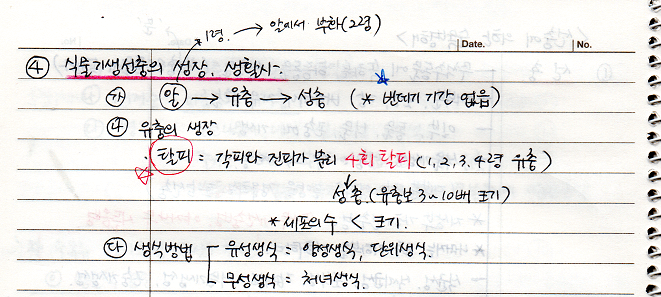 1령. → 알에서 부화(2령)
Date. No.
④ 식물기생선충의 성장, 생활사.
㉮ 알 → 유충 → 성충 (* 번데기 기간 없음)
㉯ 유충의 생장
탈피 = 각피와 진피가 분리 4회 탈피 (1, 2, 3, 4령 유충)
성충. (유충보다 3~10배 크기)
* 세포의 수 < 크기.
㉰ 생식방법 유성생식 = 양성생식, 단위생식.
무성생식 = 처녀생식.